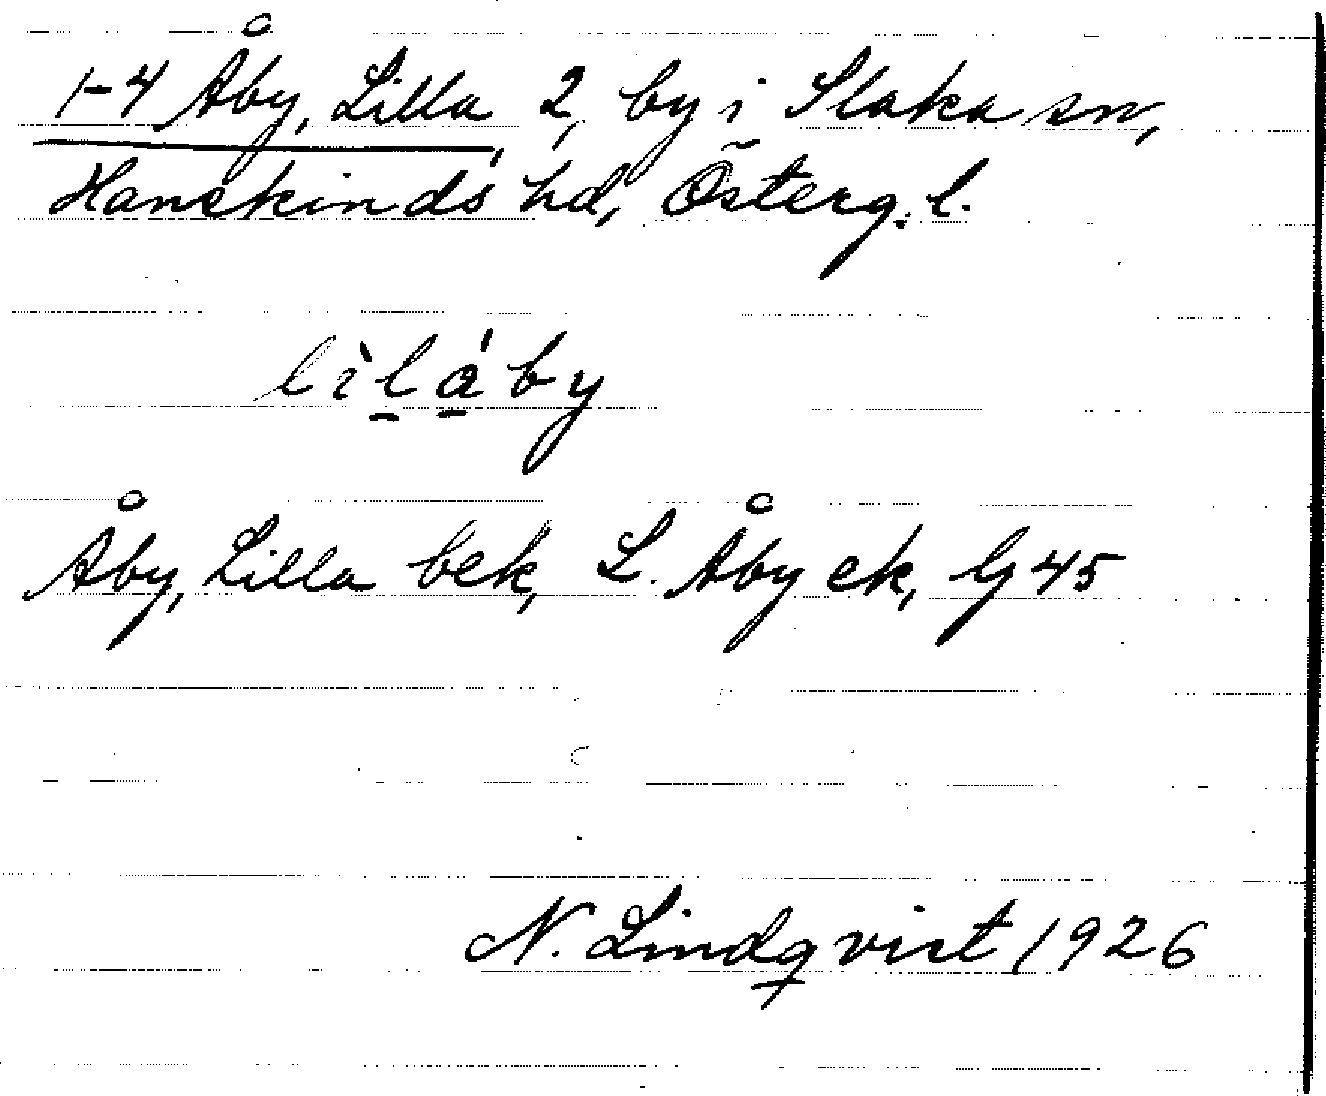 1-4 Åby, Lilla, 2, by i Slaka sn,
Hanekinds hd, Österg. l.
lìlǻby
Åby, Lilla bek, L. Åby ek, Gj 45
N. Lindqvist 1926